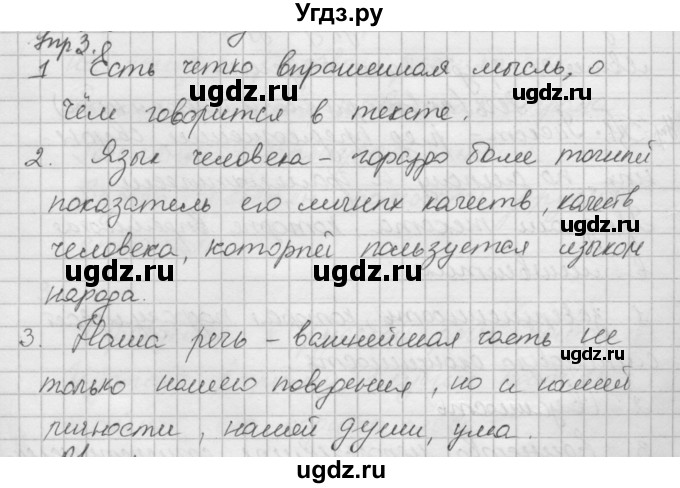 УгДЗ.ру
Упр 3.8
1 Есть четко впрашенная мысль, о
чём говорится в тексте.
2. Язык человека – гораздо более точнпй
показатель его личнпх качеств, качеств
человека, которпй пользуется языком
народа.
3. Наша речь – важнейшая часть не
только нашего поведения, но и нашей
личности, нашей души, ума.
ugdz.ru
ugdz.ru
ugdz.ru
ugdz.ru
ugdz.ru
ugdz.ru
ugdz.ru
ugdz.ru
ugdz.ru
ugdz.ru
ugdz.ru